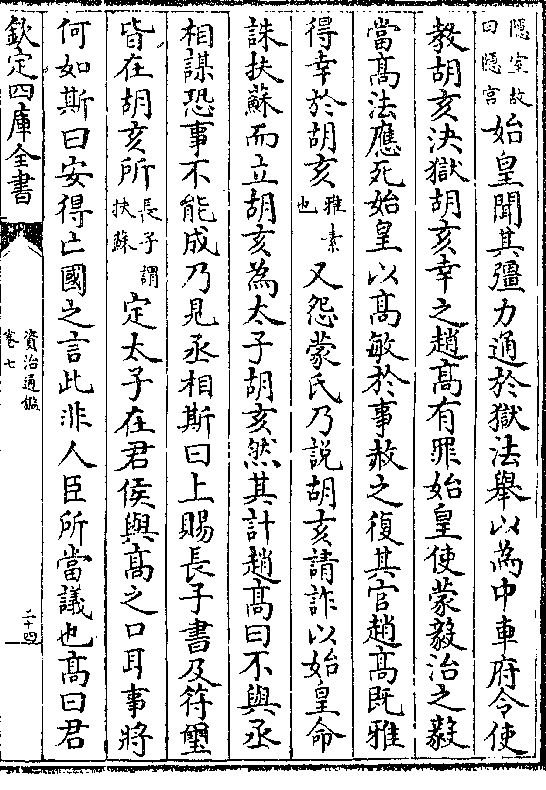 隱室故曰隱宮始皇聞其彊力通於獄法舉以為中車府令使
教胡亥決獄胡亥幸之趙髙有罪始皇使蒙毅治之毅
當髙法應死始皇以髙敏於事赦之復其官趙髙既雅
得幸於胡亥雅素也又怨蒙氏乃説胡亥請詐以始皇命
誅扶蘇而立胡亥為太子胡亥然其計趙髙曰不與丞
相謀恐事不能成乃見丞相斯曰上賜長子書及符璽
皆在胡亥所長子謂扶蘇定太子在君侯與髙之口耳事將
何如斯曰安得亡國之言此非人臣所當議也髙曰君
欽定四庫全書
資治通鑑
卷七
二十四